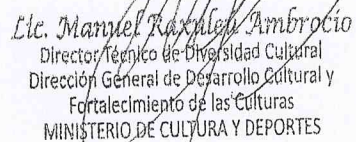 Lic. Manuel Raxuleu Ambrocio
Director Técnico de Diversidad Cultural
Dirección General de Desarrollo Cultural y
Fortalecimiento de las Culturas
MINISTERIO DE CULTURA Y DEPORTES